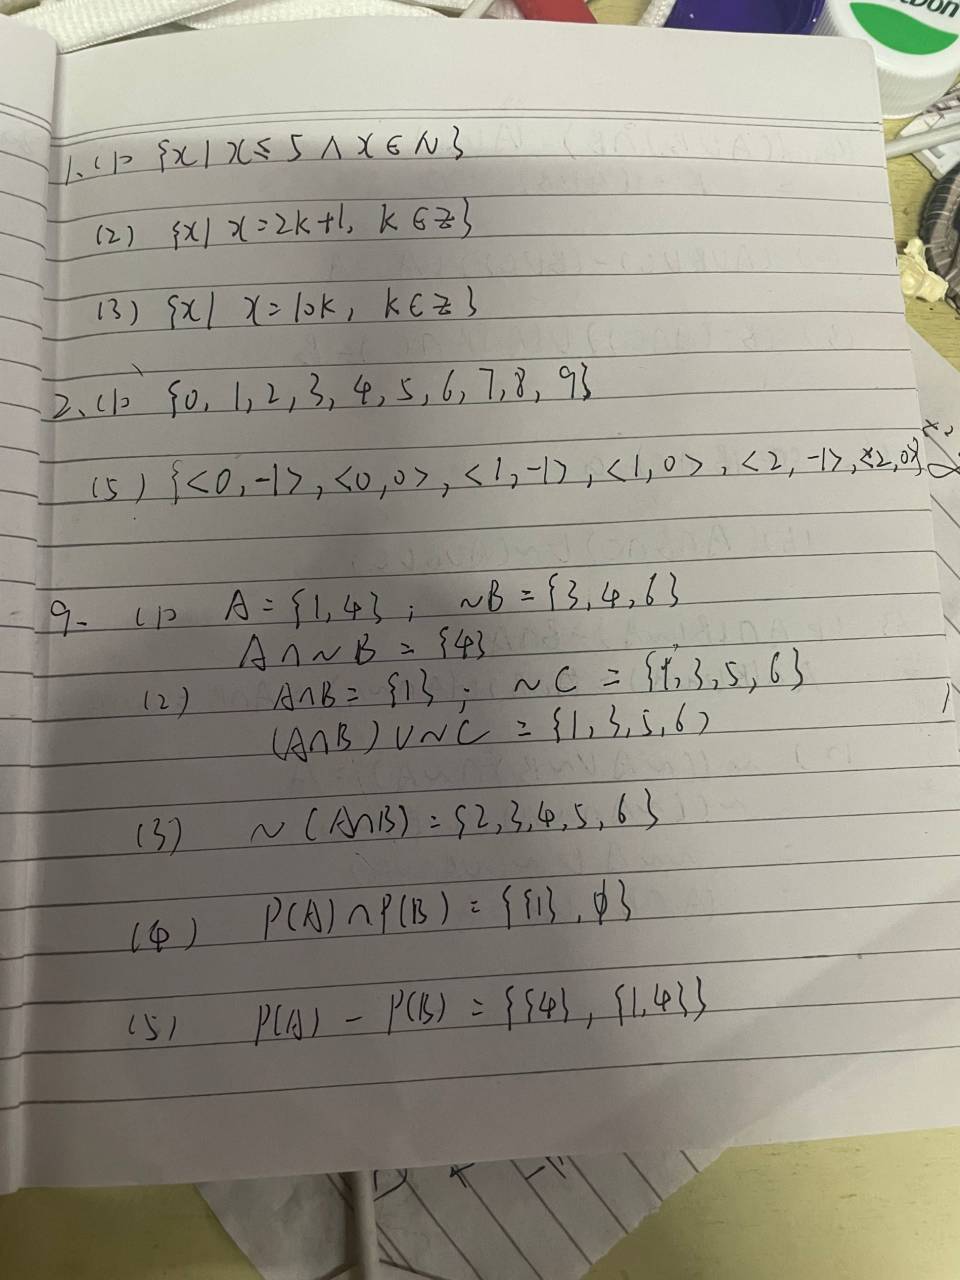 1. (1) {x | x ≤ 5 ∧ x ∈ N}
(2) {x | x = 2k+1, k ∈ Z}
(3) {x | x = 10k, k ∈ Z}
2. (1) {0, 1, 2, 3, 4, 5, 6, 7, 8, 9}
(5) {<0, -1>, <0, 0>, <1, -1>, <1, 0>, <2, -1>, <2, 0>}
9. (1) A = {1, 4} ; ~B = {3, 4, 6}
A ∩ ~B = {4}
(2) A∩B = {1} ; ~C = {1, 3, 5, 6}
(A∩B) ∪ ~C = {1, 3, 5, 6}
(3) ~(A∩B) = {2, 3, 4, 5, 6}
(4) P(A) ∩ P(B) = {{1}, ∅}
(5) P(A) - P(B) = {{4}, {1, 4}}